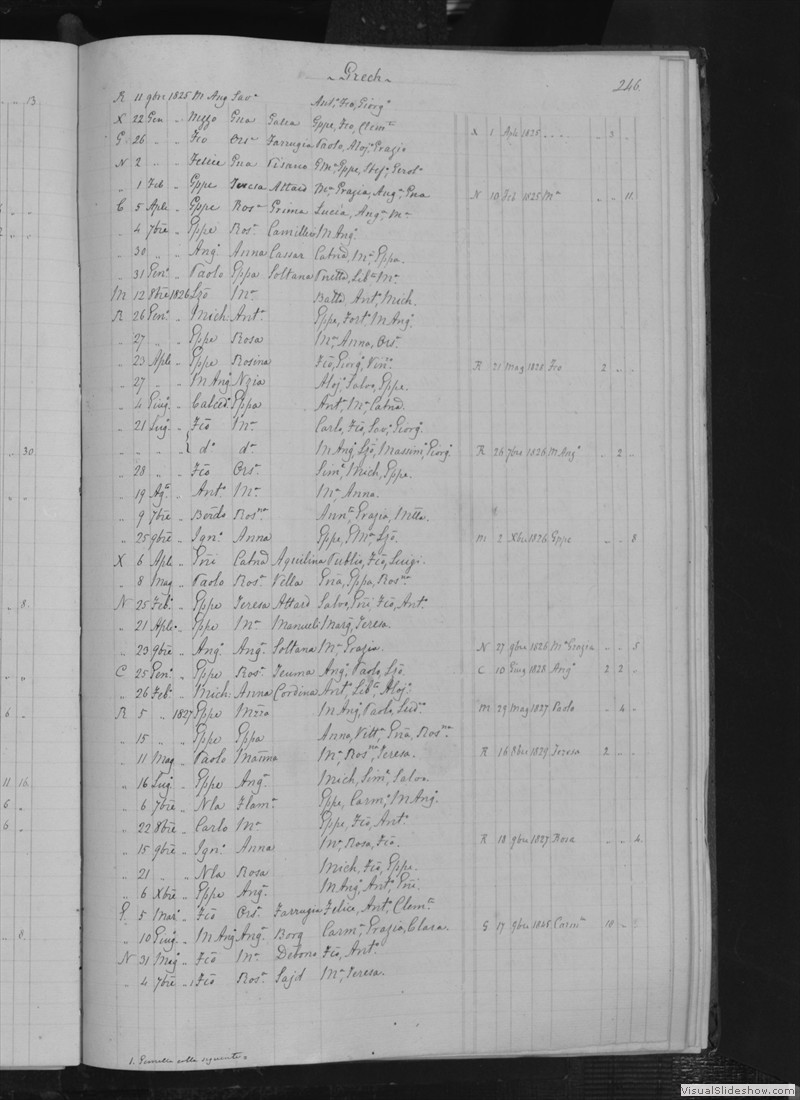 Grech
246.
R 11 gbre 1825 M Ang Sav.a Ant.o, Fco, Giorg.o
X 22 Gen .. Mizzo Gna Galea Gppe, Fco, Clem.te X 1 Aple 1825 .. 3
G 26 .. .. Fco Ors.a Farrugia Paolo, Aloj, Grazio
N 2 .. .. Felice Gna Pisano Gppe, Stef.o, Gerol.o
.. 1 Feb .. Gppe Teresa Attard M.a Grazia, Ang.a, Gna N 10 Feb 1825 M.a .. .. 11
C 5 Aple .. Gppe Ros.a Grima Lucia, Ang.a, M.a
.. 4 7bre .. Gppe Ros.a Camilleri M Ang.o
.. 30 .. .. Ang.o Anna Cassar Catna, M.a, Gppa.
.. 31 Gen.o .. Paolo Gppa Soltana Vnitta, Lib.a, M.a
M 12 8bre 1826 Lzo M.a Batta, Ant.o, Mich.
R 26 Gen.o .. Mich. Ant.a Gppe, Fort.o, M Ang.o
.. 27 .. .. Gppe Rosa M.a, Anna, Ors.a
.. 23 Aple .. Gppe Rosina Fco, Giorg.o, Vin.o R 21 Mag 1828 Fco 2 .. ..
.. 27 .. .. M Ang Nzia Aloj, Salvo, Gppe.
.. 4 Giug.o .. Calced.o Gppa Ant.a, M.a, Catna.
.. 21 Lug.o .. Fco M.a Carlo, Fco, Sav.o, Giorg.o
.. .. .. { d.o d.a M Ang.o, Lzo, Massim.o, Giorg.o R 26 7bre 1826 M Ang.o .. 2 ..
.. 28 .. .. Fco Ors.a Sim.e, Mich, Gppe.
.. 19 Ag.o .. Ant.o M.a M.a Anna.
.. 9 7bre .. Bnrdo Ros.na Ann.a, Grazia, Mtta.
.. 25 9bre .. Ign.o Anna Gppe, Lzo. M 2 Xbre 1826 Gppe .. .. 8
X 6 Aple .. Gni Catna Aquilina Publio, Fco, Luigi.
.. 8 Mag .. Paolo Ros.a Vella Gna, Gppa, Ros.na
N 25 Feb.o .. Gppe Teresa Attard Salvo, Gni, Fco, Ant.o
.. 21 Aple .. Gppe M.a Manueli Marg.a, Teresa.
.. 23 9bre .. Ang.o Ang.a Soltana M.a Grazia. N 27 9bre 1826 M.a Grazia .. .. 5
C 25 Gen.o .. Gppe Ros.a Teuma Ang.o, Paolo, Lzo. C 10 Giug 1828 Ang.o 2 2 ..
.. 26 Feb.o .. Mich. Anna Cordina Ant.o, Lib.o, Aloj.
R 5 .. 1827 Gppe Nzia M Ang, Paolo, M 29 Mag 1827 Paolo .. 4 ..
.. 15 .. .. Gppe Gppa Anna, Vitt.a, Gna, Ros.na
.. 11 Mag .. Paolo Marina M.a, Ros.na, Teresa. R 16 8bre 1829 Teresa 2 .. ..
.. 16 Lug.o .. Gppe Ang.a Mich, Sim.e, Salvo.
.. 6 7bre .. Nla Flam.a Gppe, Carm.o, M Ang.o
.. 22 8bre .. Carlo M.a Gppe, Fco, Ant.o
.. 15 9bre .. Ign.o Anna M.a, Rosa, Fca. R 18 9bre 1827 Rosa .. .. 4
.. 21 .. .. Nla Rosa Mich, Fco, Gppe.
.. 6 Xbre .. Gppe Ang.a M Ang.o, Ant.o, Gni.
G. 5 Mar.o .. Fco Ors.a Farrugia Felice, Ant.o, Clem.te
.. 10 Giug.o .. M Ang Ang.a Borg Carm.a, Grazia, Clara. G 17 9bre 1845 Carm.a 10
N 31 Mag.o .. Fco M.a Debono Fco, Ant.o
.. 4 7bre .. 1 Fco Ros.a Sajd M.a, Teresa.
1. Gemella colla seguente
13
30
8
6
11 16
6
6
8
VisualSlideshow.com